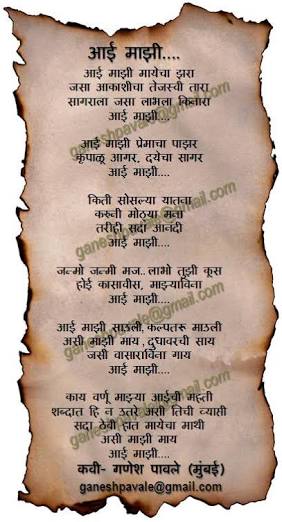 आई माझी....
आई माझी मायेचा झरा
जसा आकाशीचा तेजस्वी तारा
सागराला जसा लाभला किनारा
आई माझी....
आई माझी प्रेमाचा पाझर
कृपाळू आगर, दयेचा सागर
आई माझी....
किती सोसल्या यातना
करुनी मोठ्या मना
तरीही सदा आनंदी
आई माझी....
जन्मो जन्मी मज.. लाभो तुझी कूस
होई कासावीस, माझ्याविना
आई माझी....
आई माझी साउली, कल्पतरू माऊली
असी माझी माय, दुधावरची साय
जसी वासाराविना गाय
आई माझी....
काय वर्णू माझ्या आईची महती
शब्दात हि न उतरे असी तिची व्याप्ती
सदा ठेवी हात मायेचा माथी
असी माझी माय
आई माझी....
कवी- गणेश पावले (मुंबई)
ganeshpavale@gmail.com
ganeshpavale@gmail.com
ganeshpavale@gmail.com
ganeshpavale@gmail.com
ganeshpavale@gmail.com
ganeshpavale@gmail.com